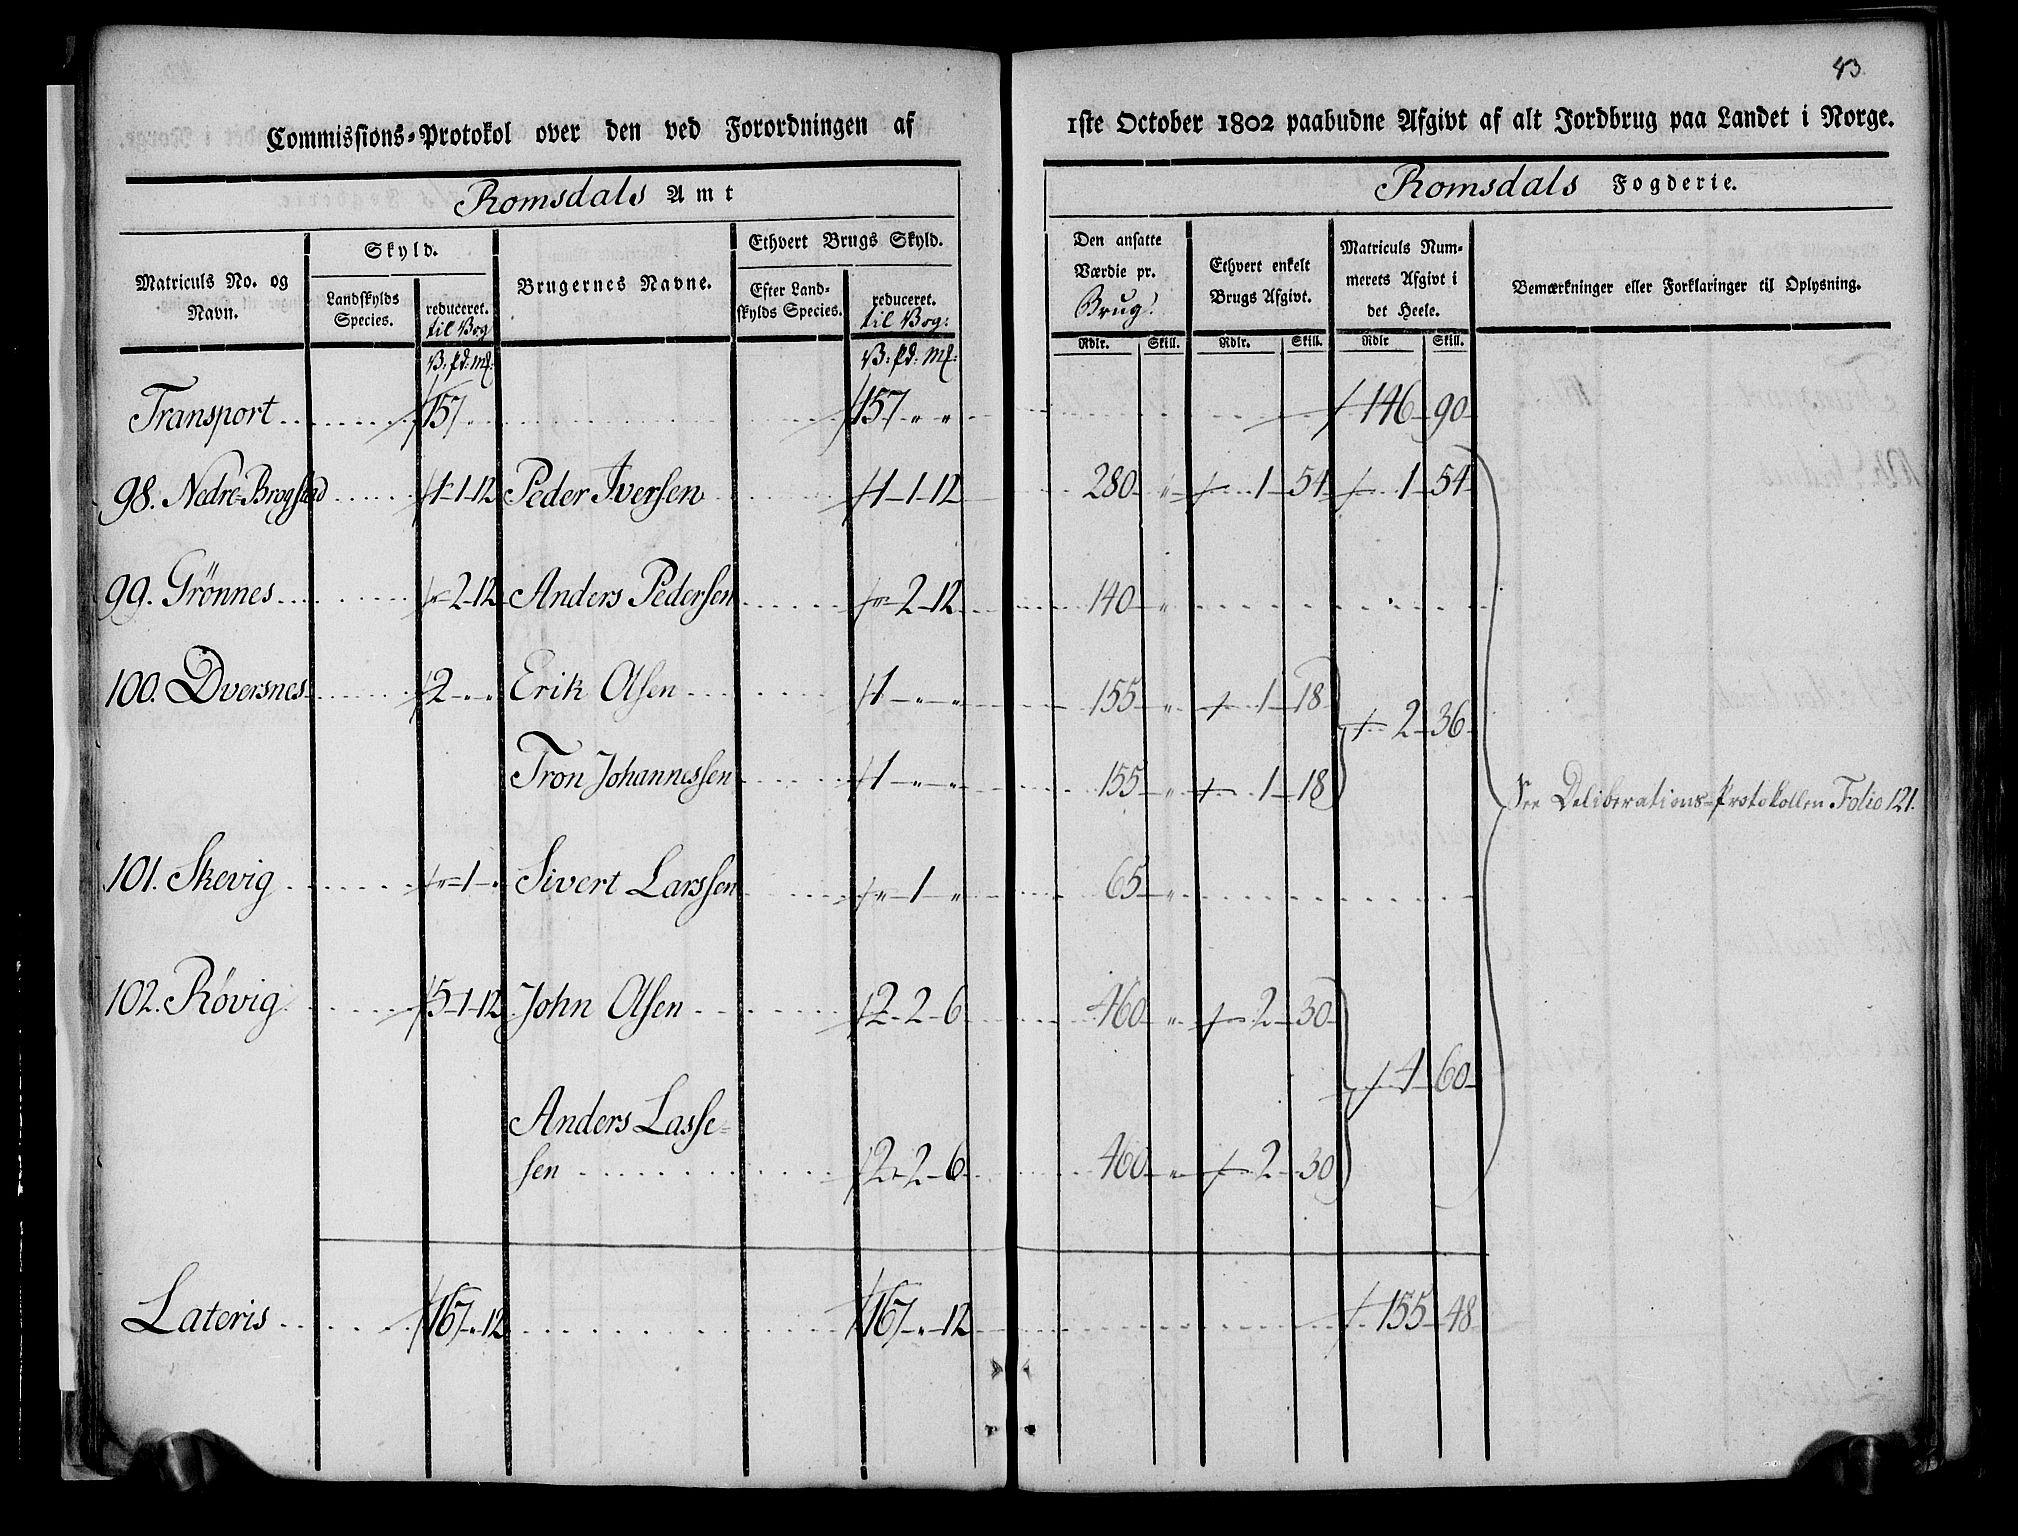 43
Commissions-Protokol over den ved Forordningen af 1ste October 1802 paabudne Afgivt af alt Jordbrug paa Landet i Norge.
Romsdals Amt
Romsdals Fogderie.
Matriculs No. og Navn.
Skyld.
Landskylds Species.
reduceret. til Bog
Brugernes Navne.
Ethvert Brugs Skyld.
Efter Landskylds Species.
reduceret. til Bog:
Den ansatte Værdie pr. Brug.
Ethvert enkelt Brugs Afgivt.
Matriculs Nummerets Afgivt i det Heele.
Bemærkninger eller Forklaringer til Oplysning.
V: pd: mk: V: pd: mk: Rdlr. Skill. Rdlr. Skill. Rdlr Skill.
Transport 157 157 " " 146 90
98. Nedre-Brogstad 1-1-12 Peder Iversen 1-1-12 280 " 1 54 1 54
99. Grönnes "-2-12 Anders Pedersen "-2-12 140 "
100. Dversnes 2-"-" Erik Olsen 1-"-" 155 " 1 18
2 36
Tron Johannessen 1-"-" 155 " 1 18
See Deliberations-Protokollen Folio 121.
101. Skevig "-1-" Sivert Larssen "-1-" 65 "
102. Rövig 5-1-12 John Olsen 2-2-6 460 " 2 30
4 60
Anders Lasse-
sen 2-2-6 460 " 2 30
Lateris 167-"-12 167-"-12 155 48